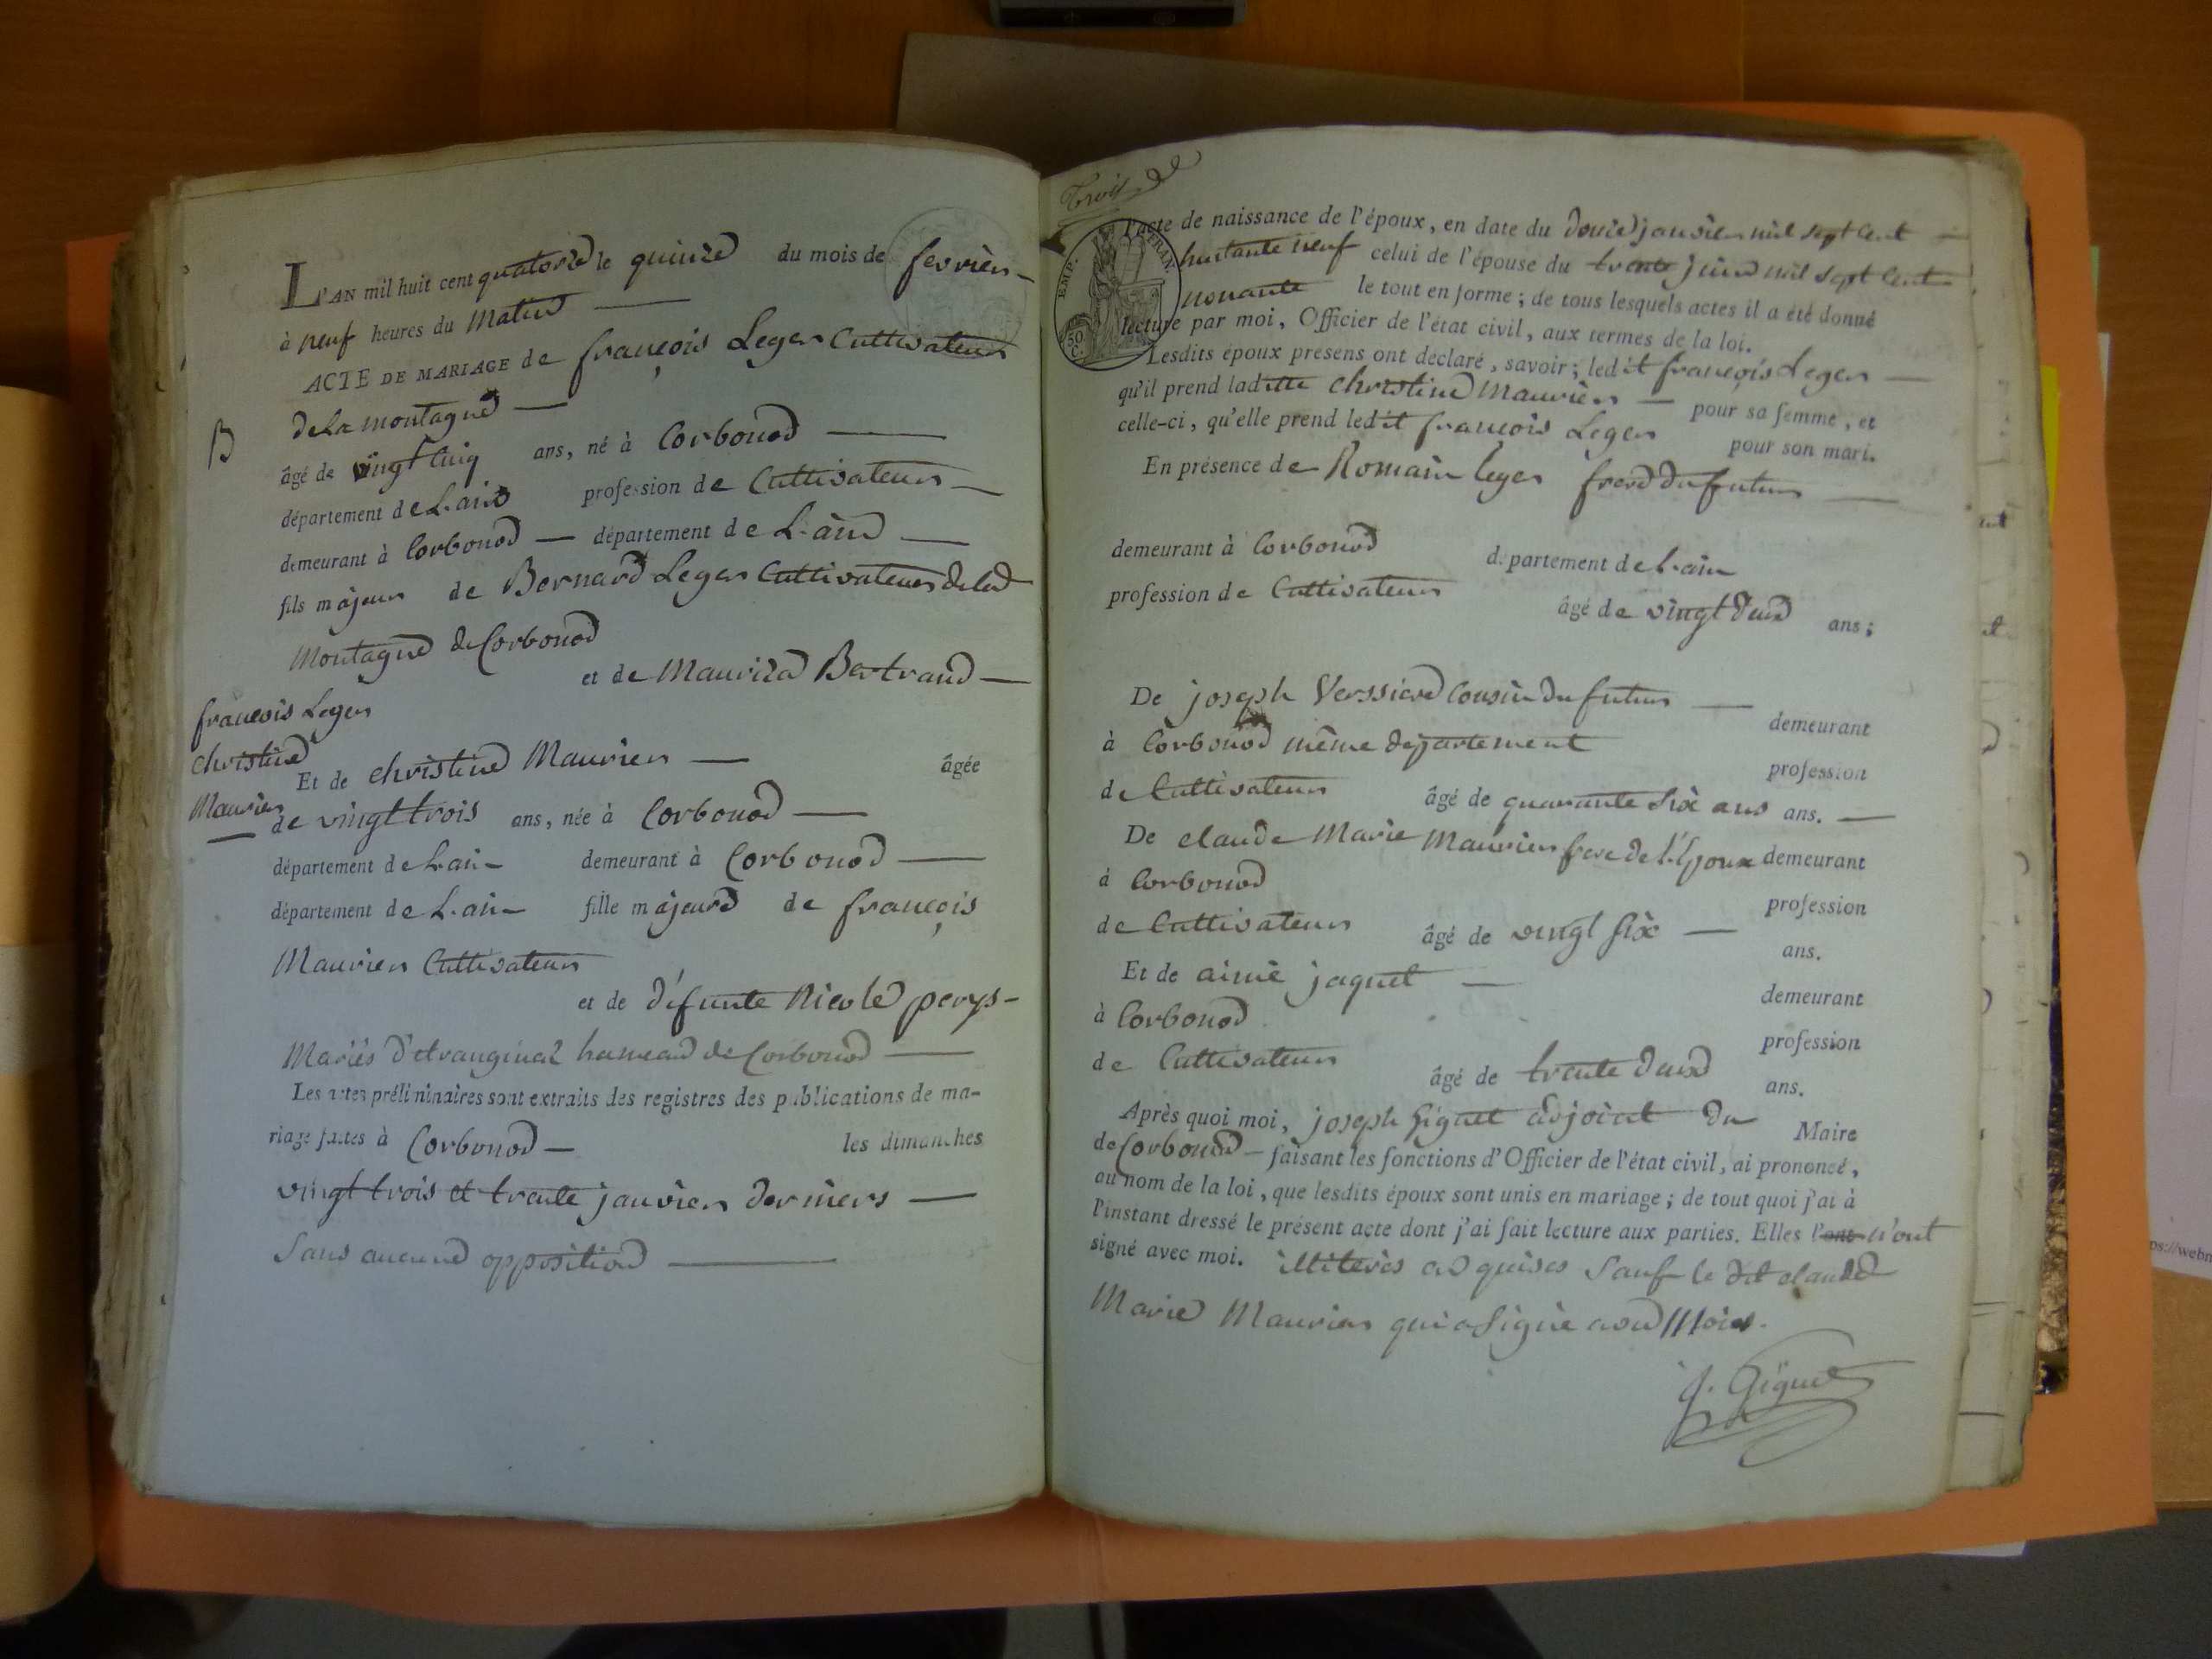 L'AN mil huit cent quatorze le quinze du mois de fevrier
à neuf heures du Matin
ACTE DE MARIAGE de françois Leger Cultivateur
de La montagne
B
âgé de vingt cinq ans, né à Corbonod
département de L'ain profession de Cultivateur
demeurant à Corbonod département de L'ain
fils majeur de Bernard Leger Cultivateur de la
Montagne de Corbonod
et de Mauriza Bertrand
françois Leger
christine
Maurier
Et de christine Maurier âgée
de vingt trois ans, née à Corbonod
département de L'ain demeurant à Corbonod
département de L'ain fille majeure de françois
Maurier Cultivateur
et de défunte Nicole perys
Mariés d'etranginaz hameau de Corbonod
Les actes préliminaires sont extraits des registres des publications de ma-
riage faites à Corbonod les dimanches
vingt trois et trente janvier derniers
Sans aucune opposition
Trois
EMP. FRAN.
50 C.
l'acte de naissance de l'époux, en date du douze janvier mil sept cent
huitante neuf celui de l'épouse du trente juin mil sept cent
nonante le tout en forme; de tous lesquels actes il a été donné
lecture par moi, Officier de l'état civil, aux termes de la loi.
Lesdits époux présens ont déclaré, savoir; ledit françois Leger
qu'il prend ladite christine Maurier pour sa femme, et
celle-ci, qu'elle prend ledit françois Leger pour son mari.
En présence de Romain leger frere du futur
demeurant à Corbonod département de L'ain
profession de Cultivateur âgé de vingt deux ans;
De joseph Verssiere Cousin du futur demeurant
à Corbonod même département profession
de Cultivateur âgé de quarante six ans ans.
De claude Marie Maurier frere de l'Epoux demeurant
à Corbonod profession
de Cultivateur âgé de vingt six ans.
Et de aimé jaquet demeurant
à Corbonod profession
de Cultivateur âgé de trente deux ans.
Après quoi moi, joseph Giguet adjoint du Maire
de Corbonod faisant les fonctions d'Officier de l'état civil, ai prononcé,
au nom de la loi, que lesdits époux sont unis en mariage; de tout quoi j'ai à
l'instant dressé le présent acte dont j'ai fait lecture aux parties. Elles l'ont n'ont
signé avec moi. illiterés Sauf le dit claude
Marie Maurier qui a signé avec Moi.
J. Giguet